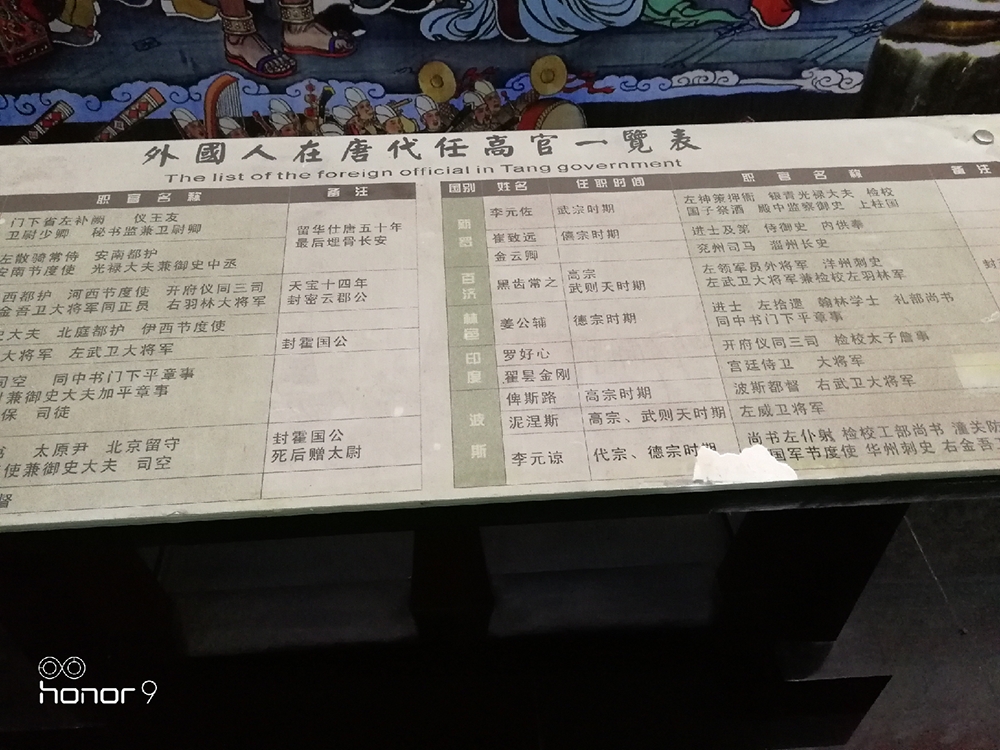 外國人在唐代任高官一覽表
The list of the foreign official in Tang government
职官名称 备注
门下省左补阙 仪王友
卫尉少卿 秘书监兼卫尉卿
留华仕唐五十年
最后埋骨长安
左散骑常侍 安南都护
安南节度使 光禄大夫兼御史中丞
西都护 河西节度使 开府仪同三司
金吾卫大将军同正员 右羽林大将军
天宝十四年
封密云郡公
史大夫 北庭都护 伊西节度使
大将军 左武卫大将军
封霍国公
司空 同中书门下平章事
兼御史大夫加平章事
保 司徒
太原尹 北京留守
使兼御史大夫 司空
封霍国公
死后赠太尉
督
国别 姓名 任职时间 职官名称 备注
新罗
李元佐 武宗时期
左神策押衙 银青光禄大夫 检校
国子祭酒 殿中监察御史 上柱国
崔致远 僖宗时期 进士及第 侍御史 内供奉
金云卿 兖州司马 淄州长史
百济
黑齿常之
高宗
武则天时期
左领军员外将军 洋州刺史
左武卫大将军兼检校左羽林军
封
林邑
姜公辅 德宗时期
进士 左拾遗 翰林学士 礼部尚书
同中书门下平章事
印度
罗好心 开府仪同三司 检校太子詹事
翟昙金刚 宫廷侍卫 大将军
波斯
俾斯路 高宗时期 波斯都督 右武卫大将军
泥涅斯 高宗、武则天时期 左威卫将军
李元谅 代宗、德宗时
尚书左仆射 检校工部尚书 潼关防
国军节度使 华州刺史 右金吾
honor 9